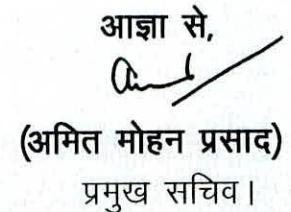 आज्ञा से,
(अमित मोहन प्रसाद)
प्रमुख सचिव।